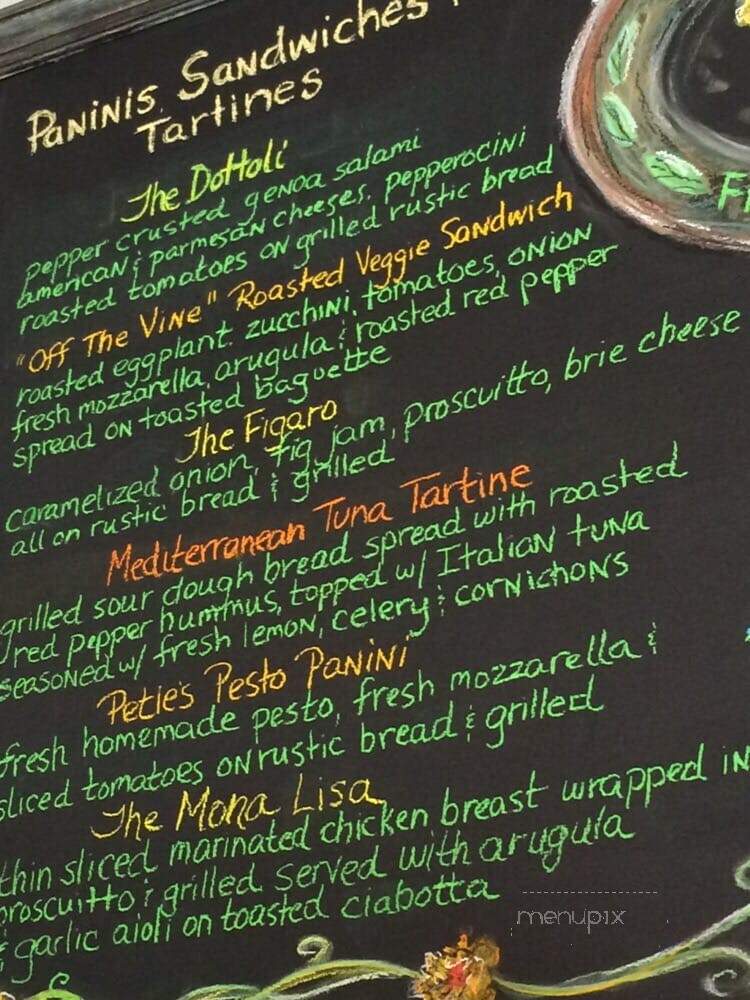 Paninis, Sandwiches
Tartines
The Dottoli
pepper crusted genoa salami
american & parmesan cheeses, pepperocini
roasted tomatoes on grilled rustic bread
"Off The Vine" Roasted Veggie Sandwich
roasted eggplant, zucchini, tomatoes, onion
fresh mozzarella, arugula & roasted red pepper
spread on toasted baguette
The Figaro
caramelized onion, fig jam, proscuitto, brie cheese
all on rustic bread & grilled
Mediterranean Tuna Tartine
grilled sour dough bread spread with roasted
red pepper hummus, topped w/ Italian tuna
seasoned w/ fresh lemon, celery & cornichons
Petie's Pesto Panini
fresh homemade pesto, fresh mozzarella &
sliced tomatoes on rustic bread & grilled
The Mona Lisa
thin sliced marinated chicken breast wrapped in
proscuitto & grilled served with arugula
& garlic aioli on toasted ciabotta
menupix